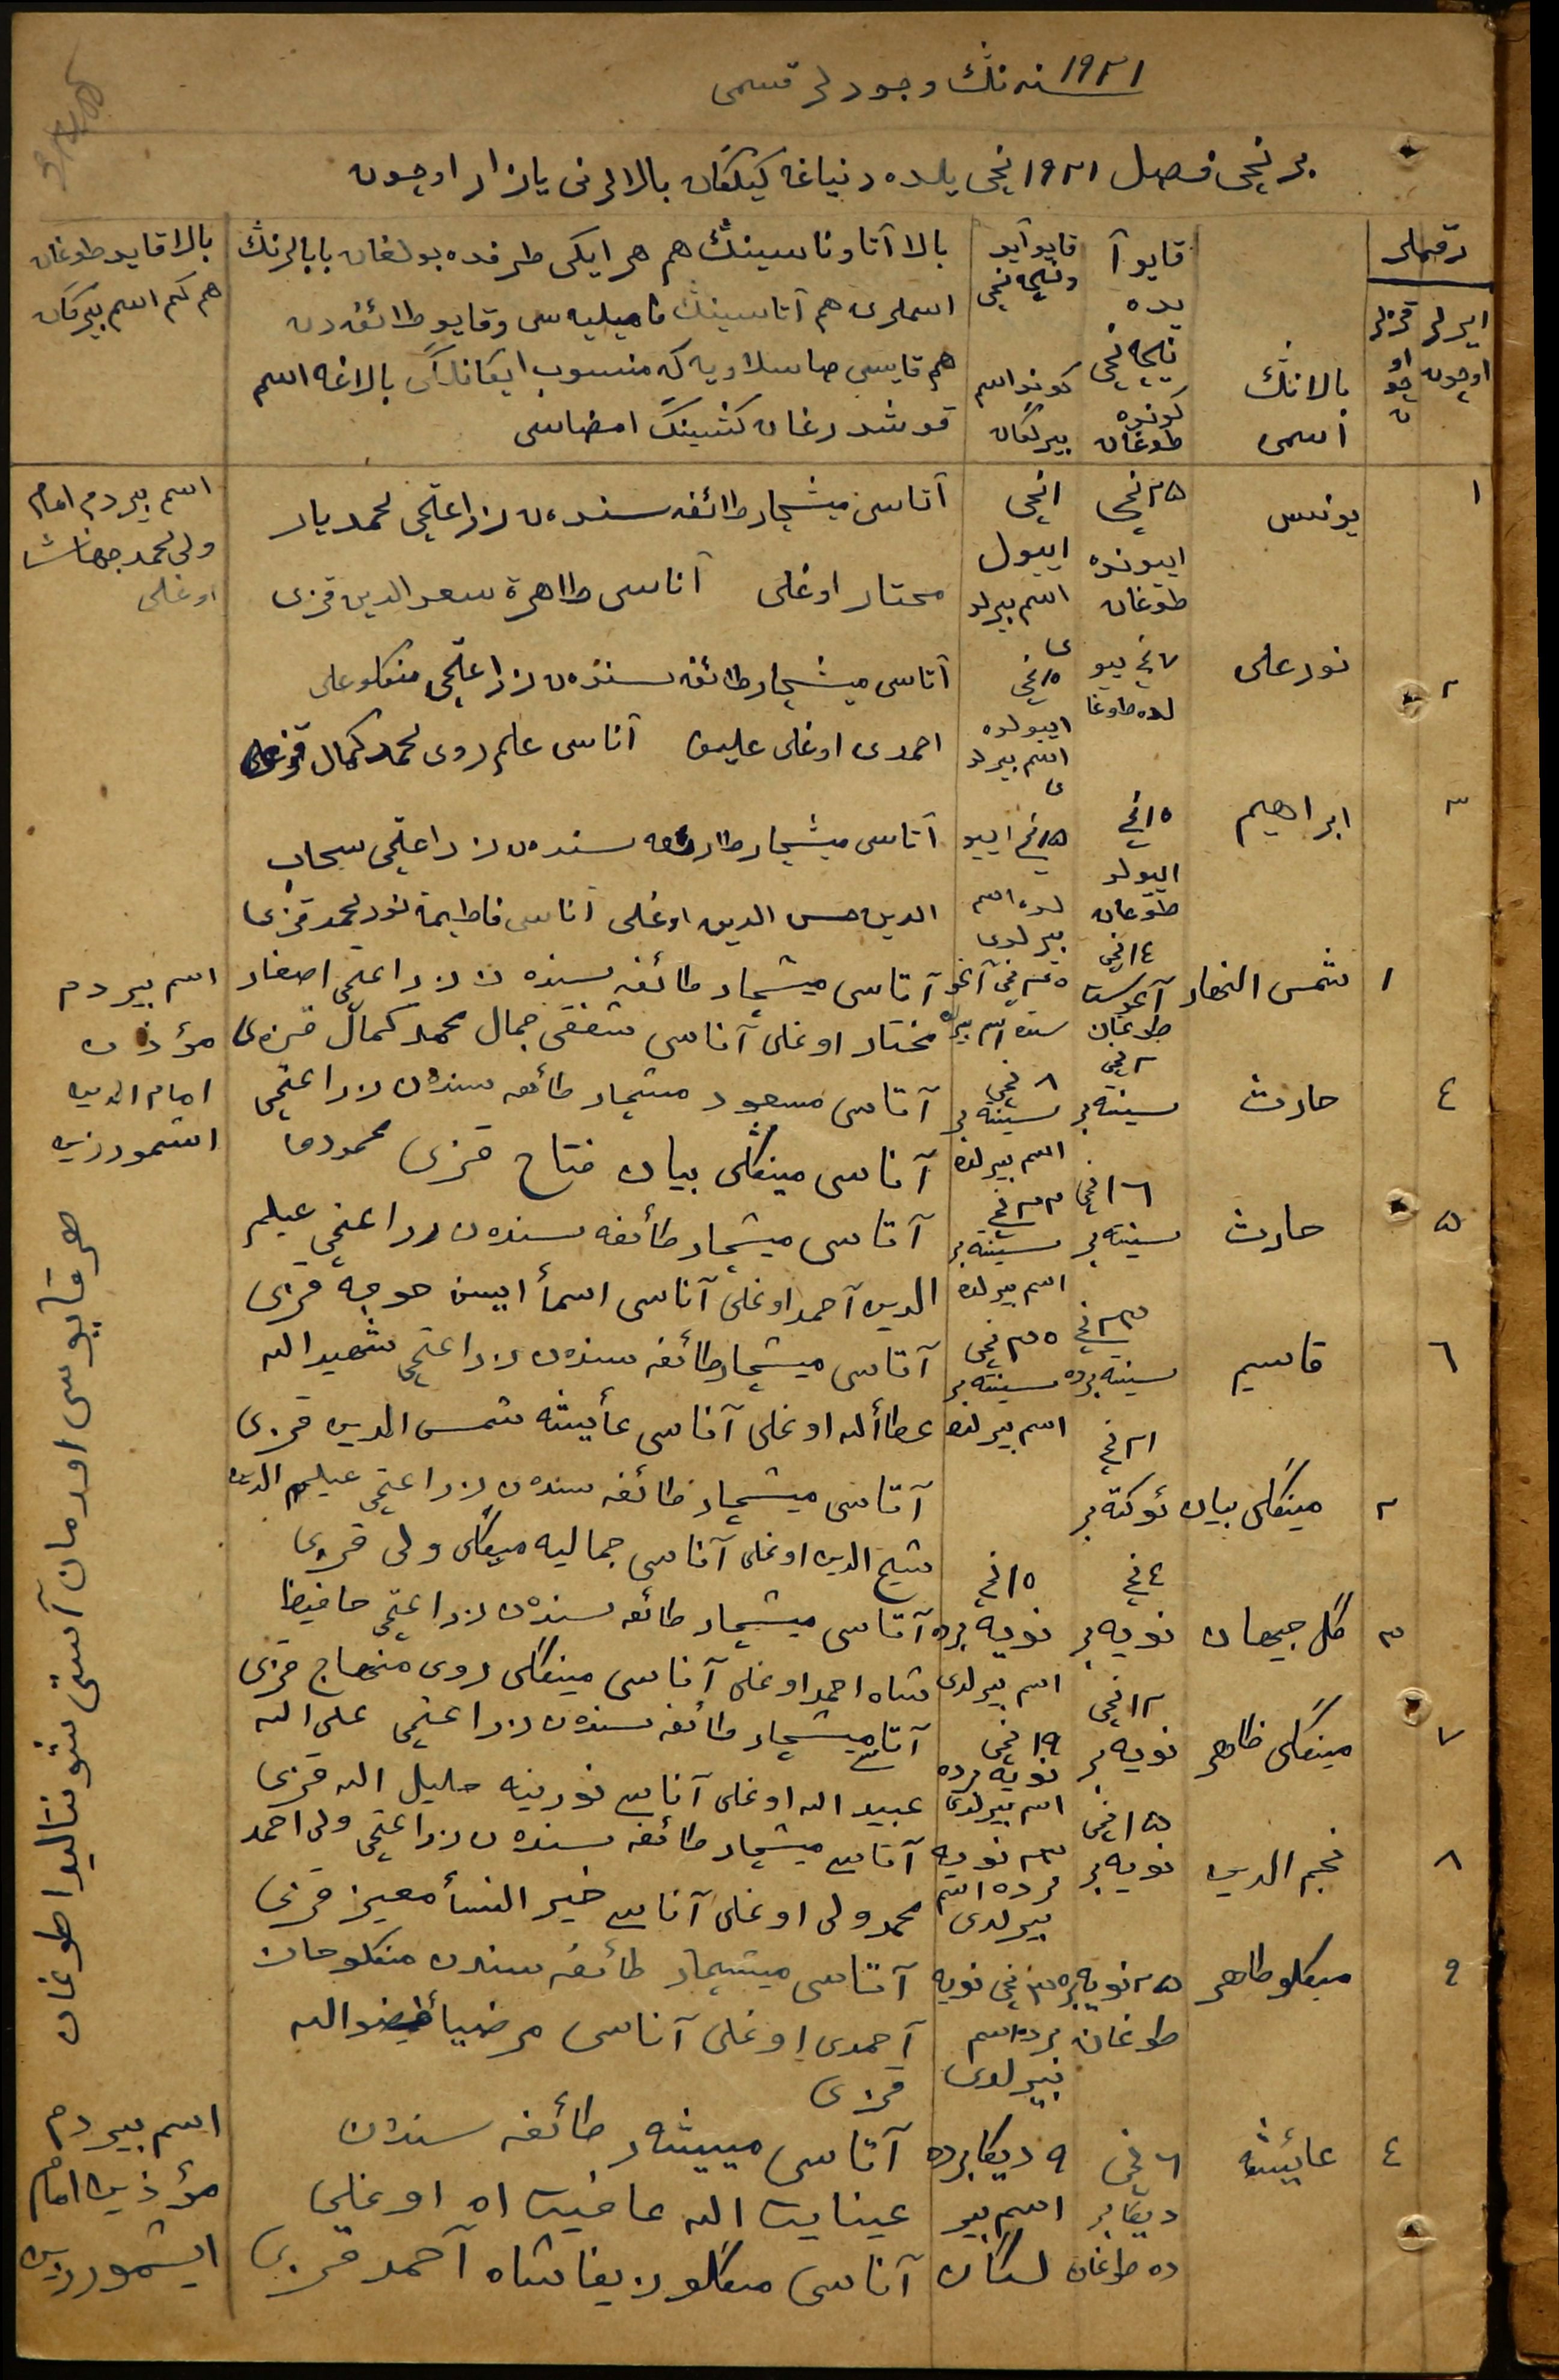 ١٩٢١ سنه‌نڭ وجودلر قسمی
برنچی فصل ١٩٢١ نچی یلده دنیاغه کیلگان بالالرنی یازار اوچون
رقملر
ایرلر اوچون
قزلر اوچون
بالانڭ اسمی
قایو آیده نیچه نچی کونده طوغان
قایو آیو ونیچه نچی کوندا اسم بیرلگان
بالا آتا وناسینڭ هم هر ایکی طرفده بولغان بابالرنڭ
اسملری هم آتاسینڭ فامیلیه سی وقایو طائفه‌دن
هم قایسی صاسلاویه گه منسوب ایکانلگی بالاغه اسم
قوشدرغان کشینڭ امضاسی
بالا قایده طوغان
هم کم اسم بیرگان
١
یونس
٢٥ نچی
اییونده
طوغان
١ نچی
اییول
اسم بیرلدی
آتاسی میشچار طائفه سنده‌ن زراعتچی محمدیار
مختار اوغلی آناسی طاهرة سعدالدین قزی
اسم بیردم امام
ولی محمد جهانشا
اوغلی
٢
نورعلی
٧ نچی ییو
لده طوغا
١٥ نچی
اییولده
اسم بیرلدی
آتاسی میشچار طائفه سنده‌ن زراعتچی منکلوعلی
احمدی اوغلی علیف آناسی علم روی محمد کمال قزی
٣
ابراهیم
١٥ نچی
اییولد
طوغان
١٥ نچی اییو
لده اسم
بیرلدی
آتاسی میشچار طائفه سنده‌ن زراعتچی سحاب
الدین حسن الدین اوغلی آناسی فاطیمة نورمحمد قزی
١
شمس النهار
١٤ نچی
آغوست
طوغان
آتاسی میشچار طائفه سنده‌ن زراعتچی اصغار
مختار اوغلی آناسی شفقی جمال محمد کمال قزی
اسم بیردم
مؤذن
امام الدین
اشمورزین
٤
حارث
٢ نچی
سینته‌بر
٨ نچی
سینته‌بر
اسم بیرلده
آتاسی مسعود مشچار طائفه سنده‌ن زراعتچی
آناسی مینگلی بیان فتاح قزی محمودفا
٥
حارث
١٦ نچی
سینته‌بر
٢٣ نچی
سینته‌بر
اسم بیرلده
آتاسی میشچار طائفه سنده‌ن زراعتچی عیلم
الدین آحمد اوغلی آناسی اسمأ ایسن خوجه قزی
٦
قاسیم
٢٣ نچی
سینته‌برده
٣٥ نچی
سینته‌بر
اسم بیرلده
آتاسی میشچار طائفه سنده‌ن زراعتچی شهیدالله
عطأالله اوغلی آناسی عأیشه شمس الدین قزی
٢
مینگلی بیان
٢١ نچی
ئوکته‌بر
آتاسی میشچار طائفه سنده‌ن زراعتچی عیلم الدین
شیخ الدین اوغلی آناسی جمالیه مینگلی ولی قزی
٣
گل جیهان
٤ نچی
نویه‌بر
١٥ نچی
نویه‌برده
اسم بیرلدی
آتاسی میشچار طائفه سنده‌ن زراعتچی حافیظ
شاه احمد اوغلی آناسی مینگلی روی منهاج قزی
٧
مینگلی ظاهر
١٢ نچی
نویه‌بر
١٩ نچی
نویه‌برده
اسم بیرلدی
آتاسی میشچار طائفه سنده‌ن زراعتچی علی الله
عبیدالله اوغلی آناسی نورینه خلیل الله قزی
٨
نجم الدین
١٥ نچی
نویه‌بر
٢٣ نویه
برده اسم
بیرلدی
آتاسی میشچار طائفه سنده‌ن زراعتچی ولی احمد
محمد ولی اوغلی آناسی خیر النسأ معیز قزی
٩
مینکلو طاهر
٢٥ نویه‌بره
طوغان
٣٠ نچی نویه
برده اسم
بیرلدی
آتاسی میشچار طائفه سندن منکلوجان
آحمدی اوغلی آناسی مرضیأ
قزی
٤
عائیشه
٦ نچی
دیکابر
ده طوغان
٩ دیکابرده
اسم بیر
لگان
آتاسی میشه‌ر طائفه سندن
عینایت الله عافیت اه اوغلی
آناسی منگلوزیفا شاه آحمد قزی
اسم بیردم
مؤذین امام
ایشمورزین
هر قایوسی اورمان آستی شونتالیدا طوغان